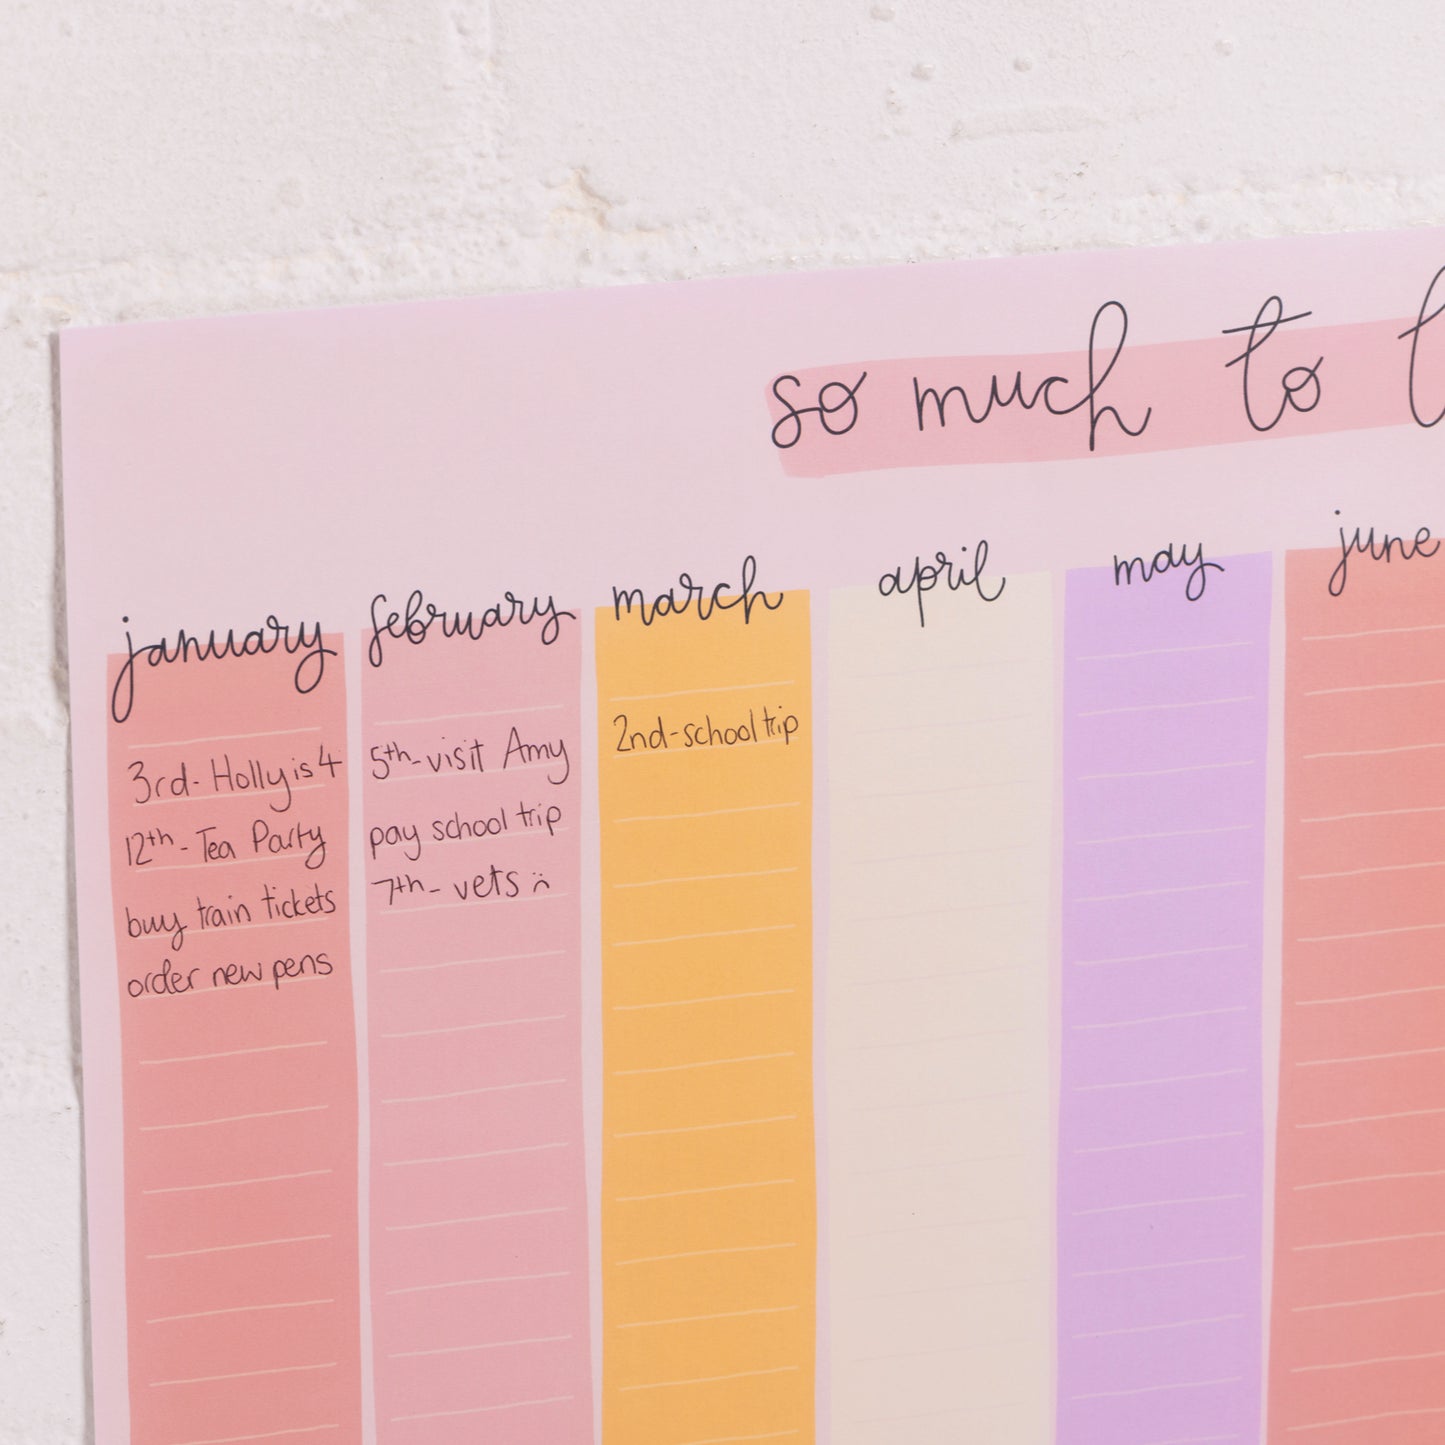 so much to
january
3rd- Holly is 4
12th- Tea Party
buy train tickets
order new pens
february
5th- visit Amy
pay school trip
7th- vets :(
march
2nd-school trip
april
may
june